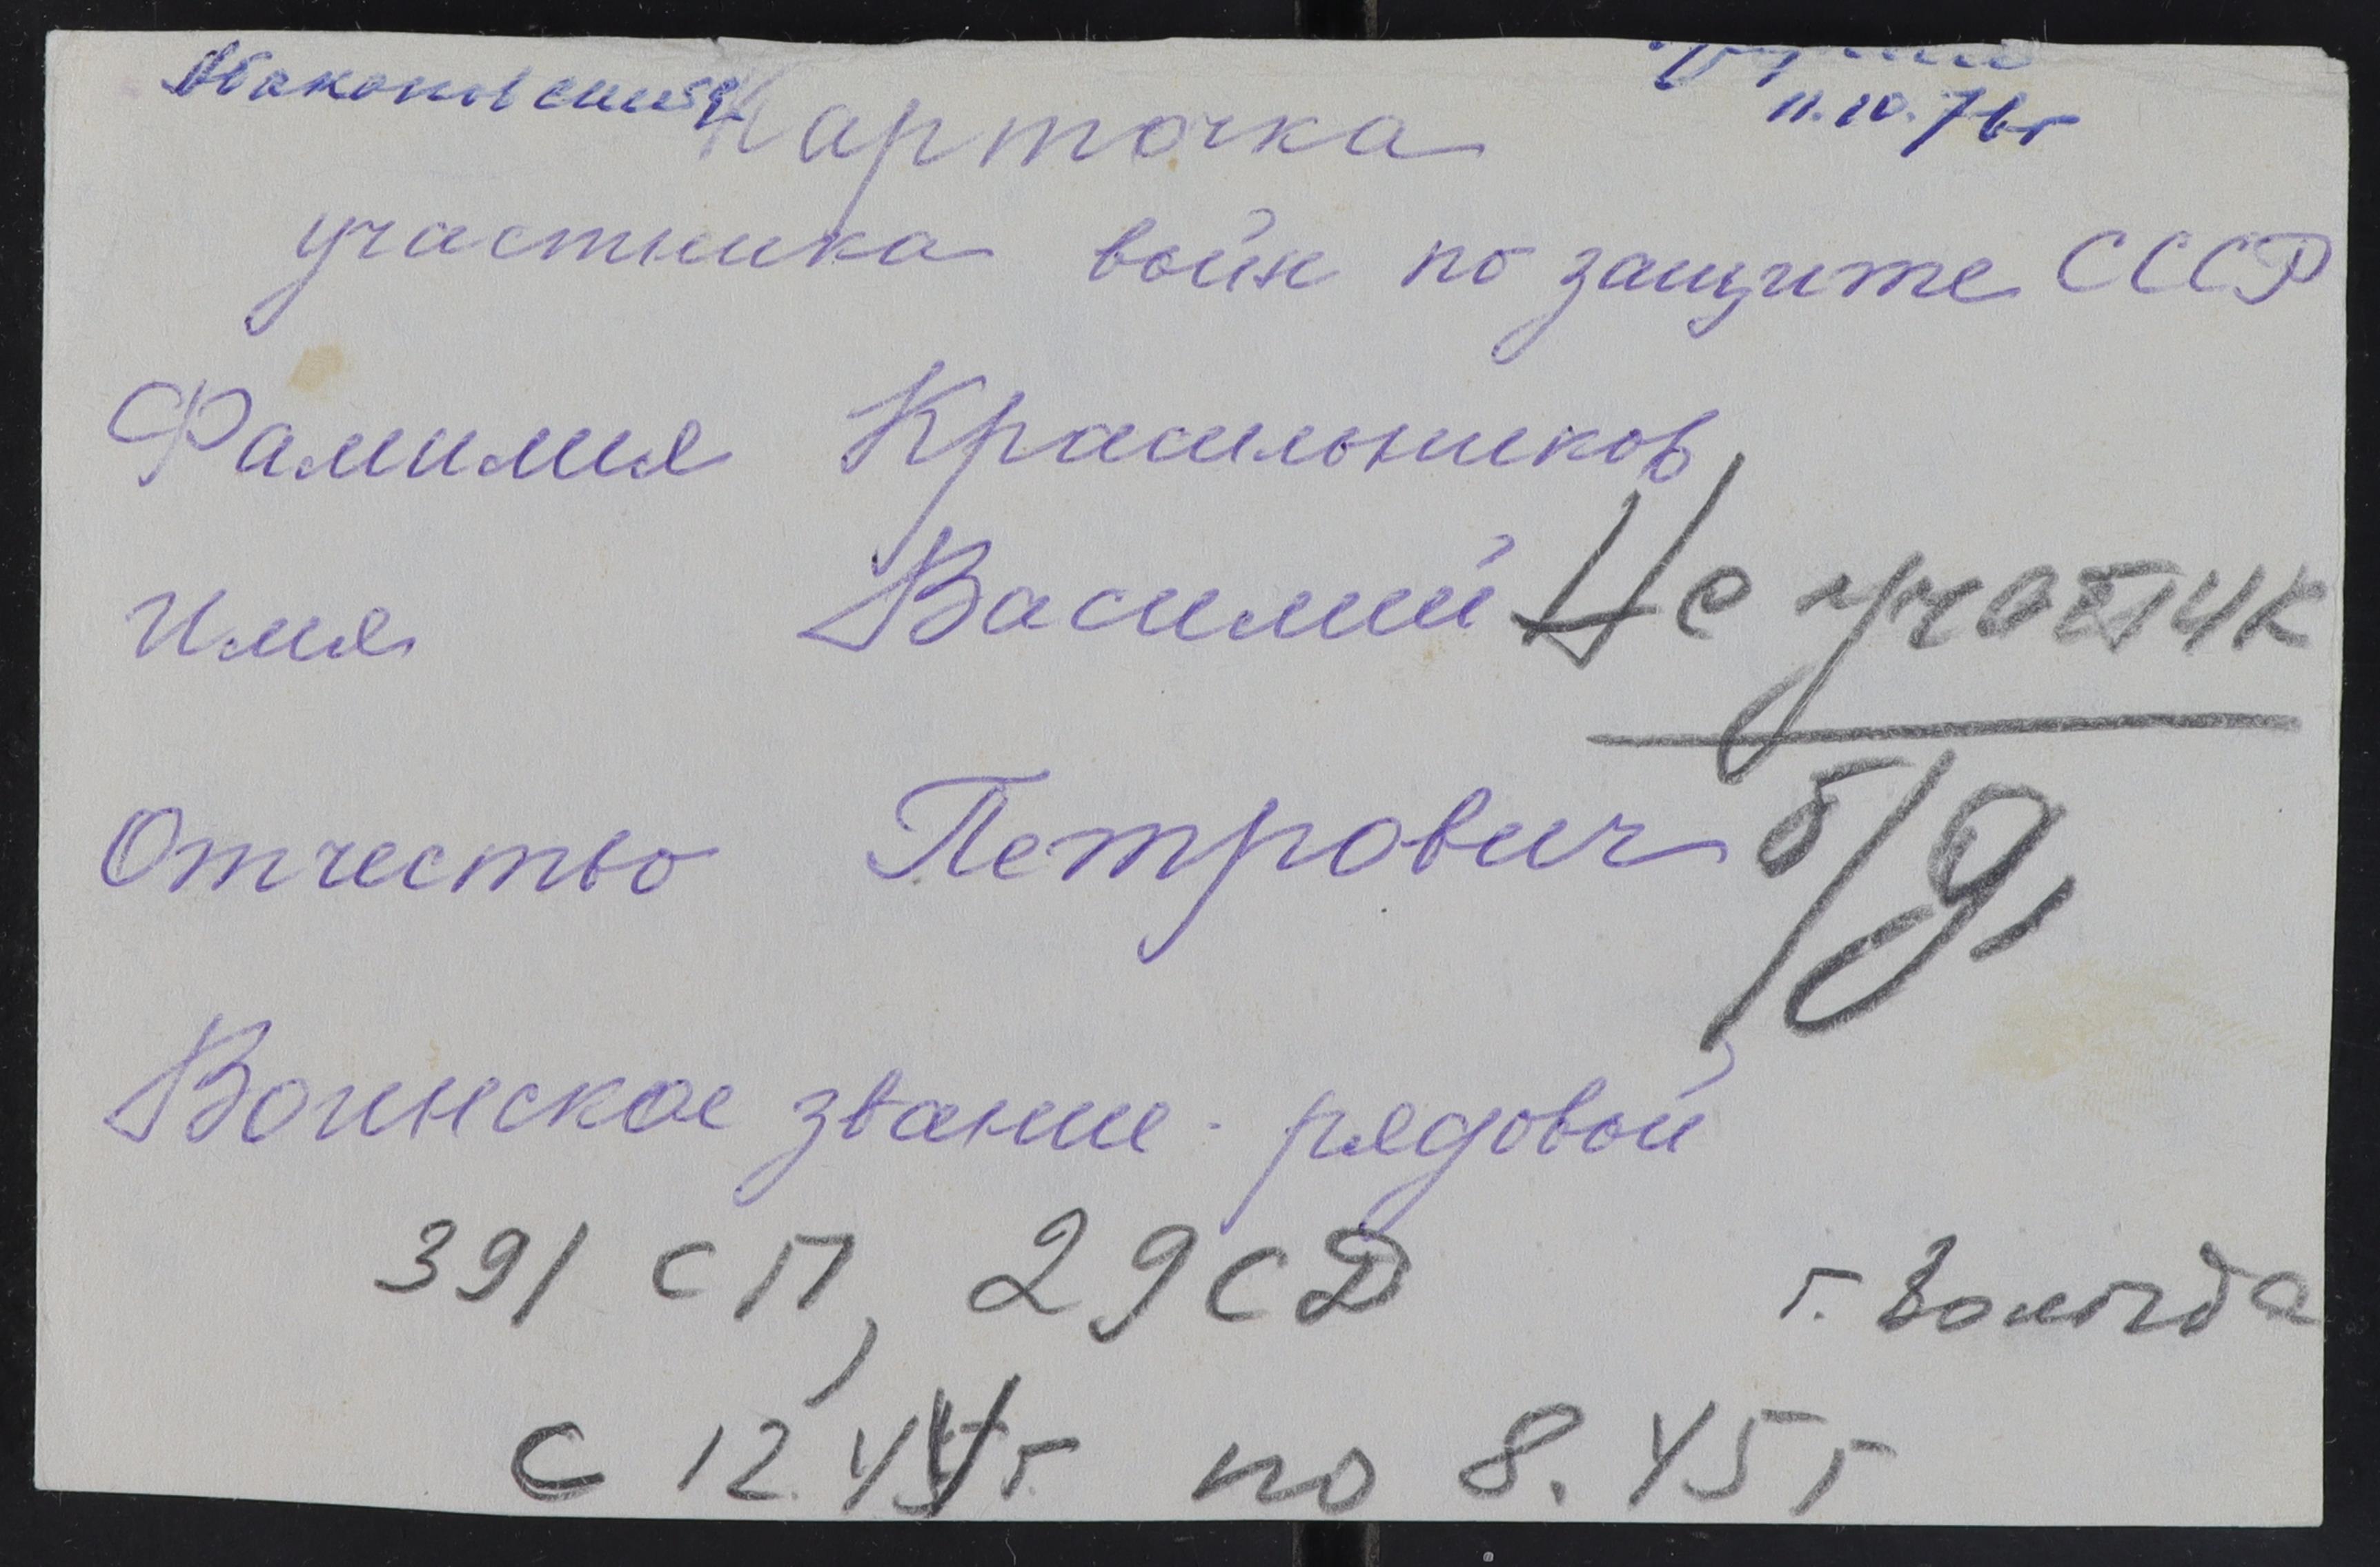 11.10.76г
Карточка
участника войн по защите СССР
Фамилия Красильников
Имя Василий Не участник
Отчество Петрович б/д,
Воинское звание - рядовой
391 сп, 29 сД г. Вологда
с 12.44г. по 8.45г